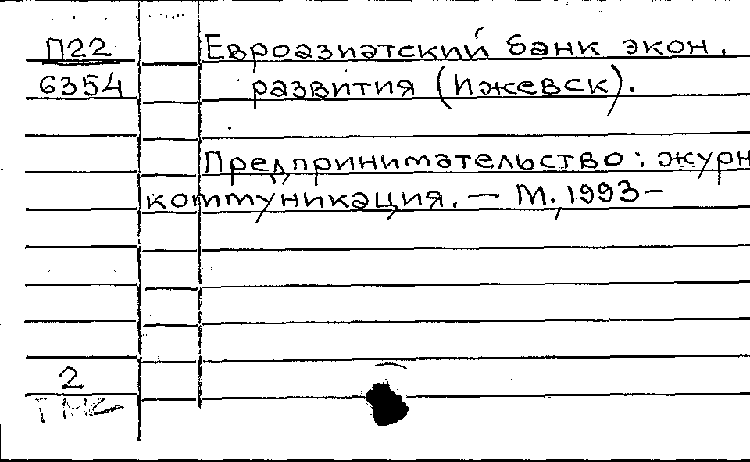 П22
6354
Евроазиатский банк экон.
развития (Ижевск).
Предпринимательство: журн
коммуникация. — М., 1993 –
2